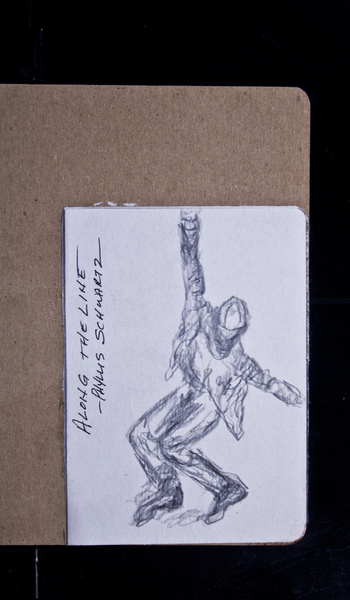 ALONG THE LINE
- PHYLLIS SCHWARTZ